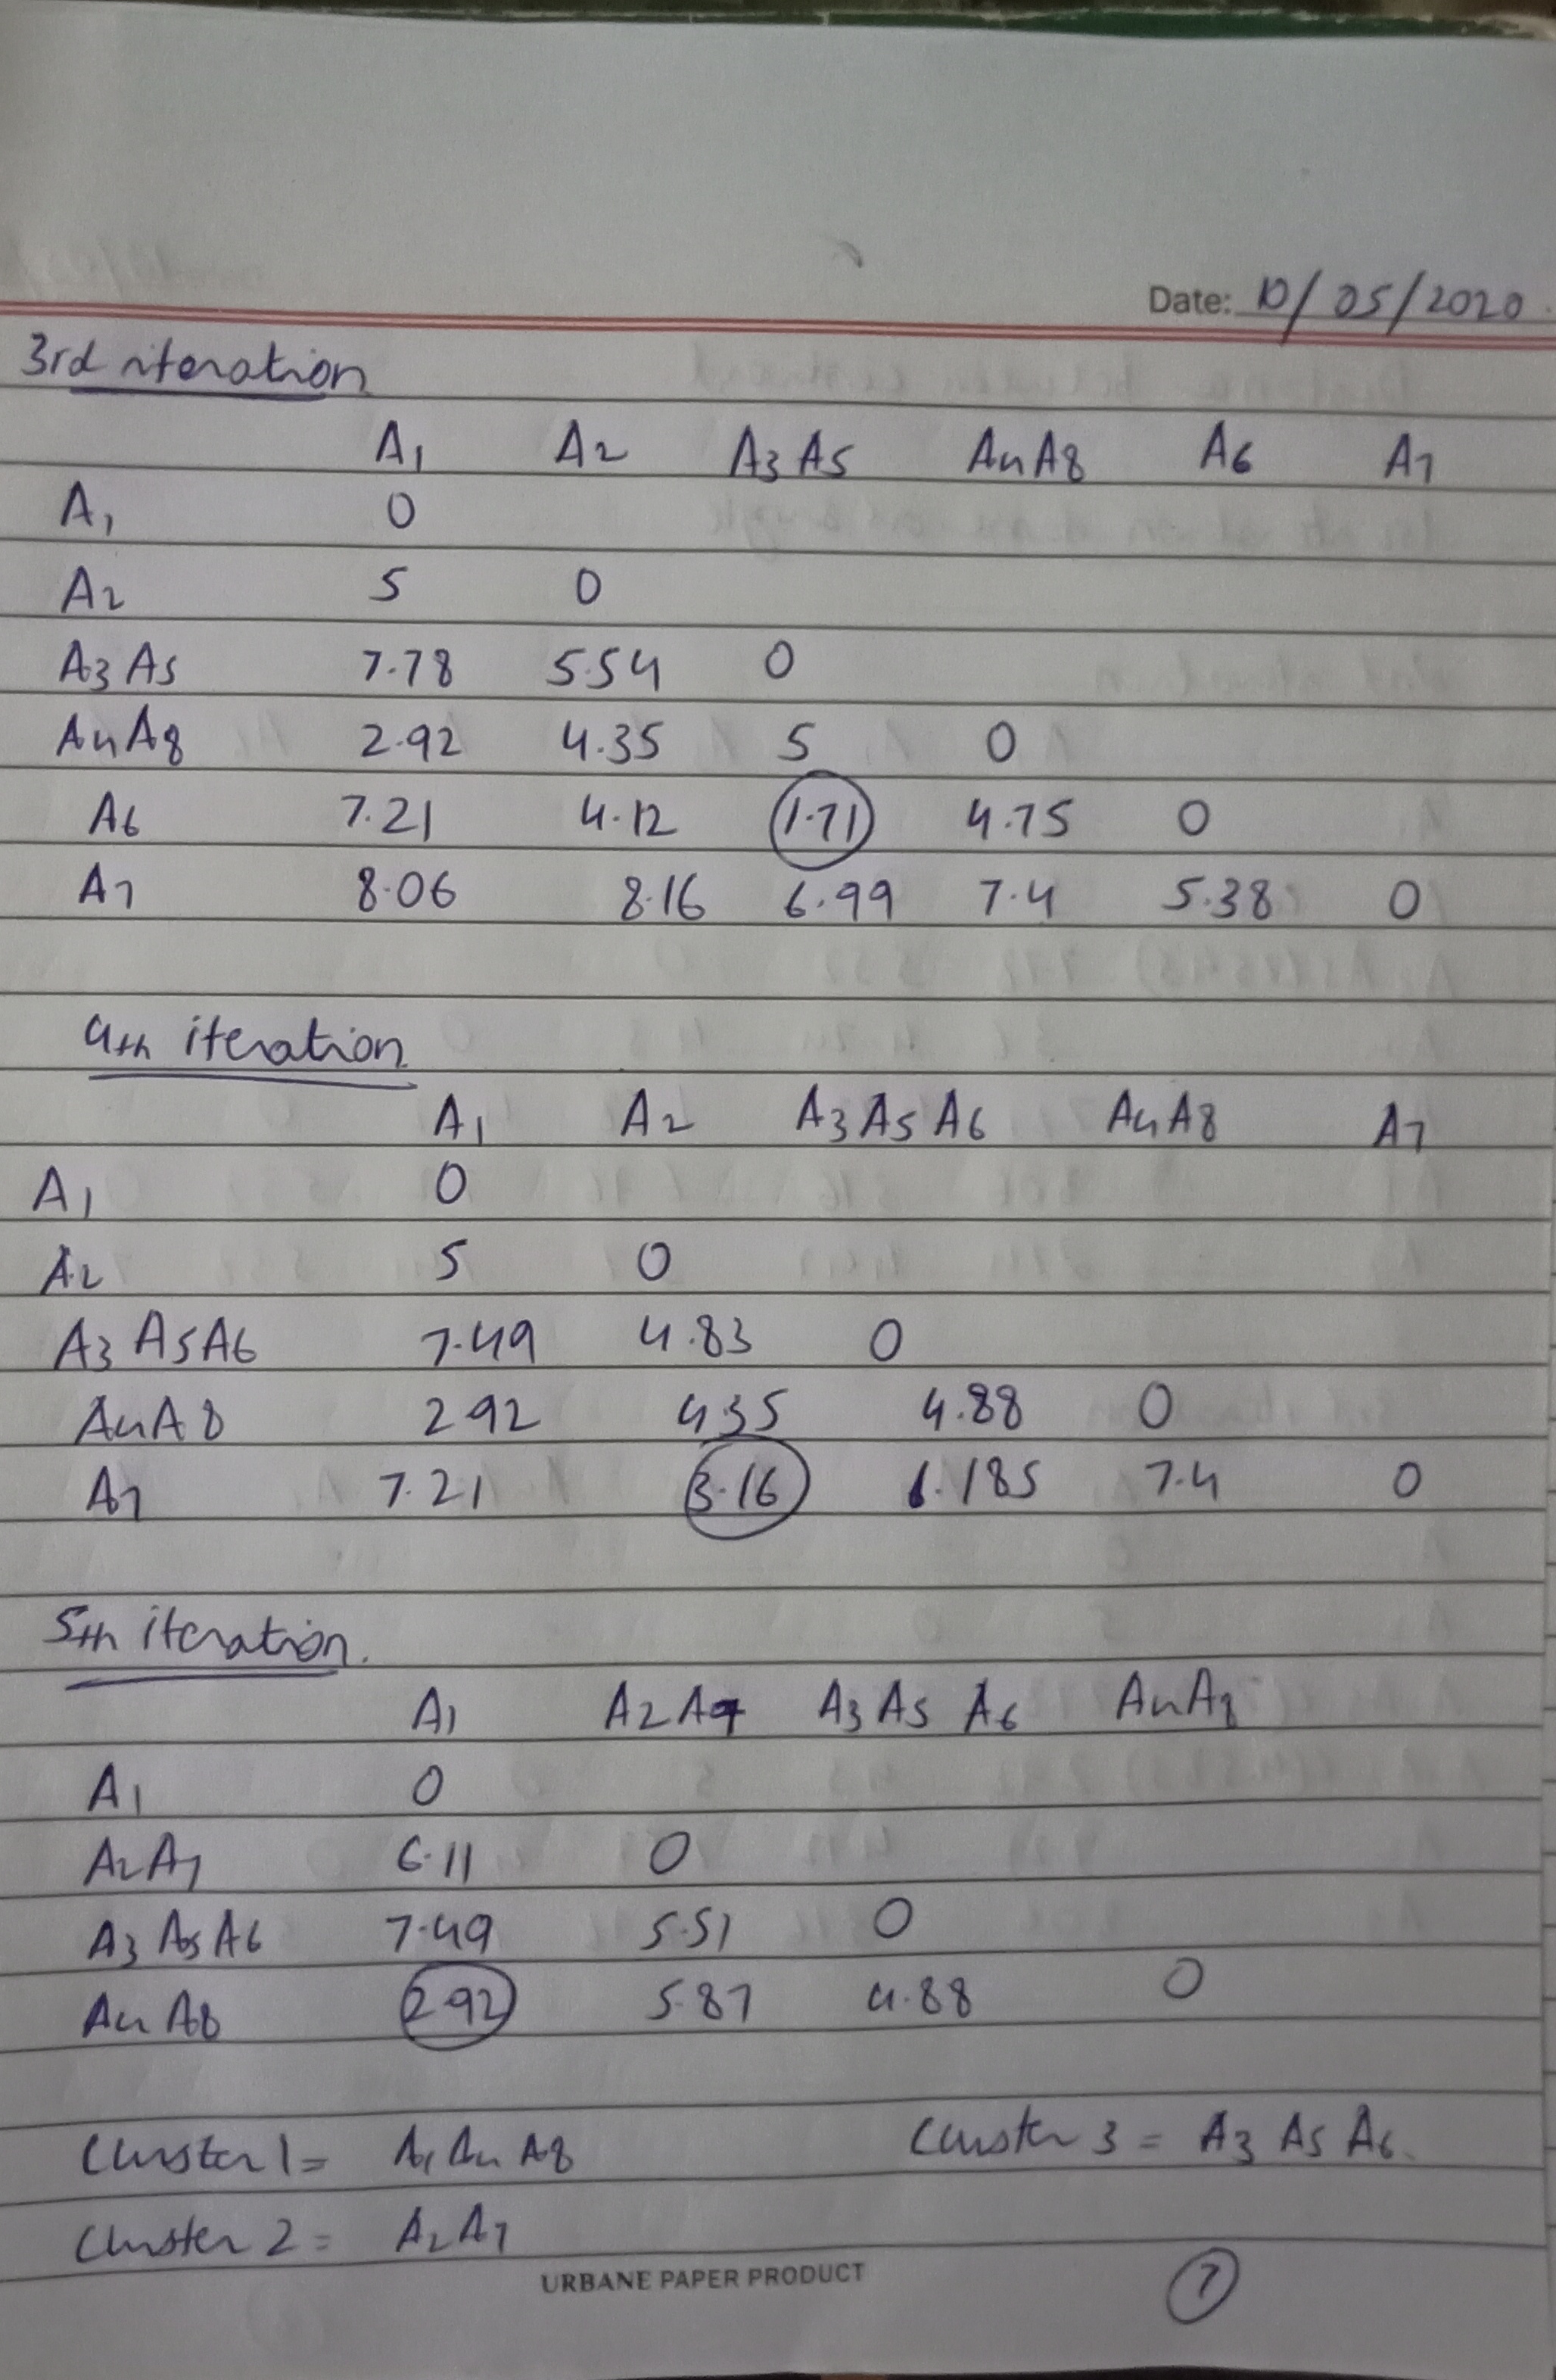 Date: 10/05/2020
3rd iteration
A1 A2 A3 A5 A4 A8 A6 A7
A1 0
A2 5 0
A3 A5 7.78 5.54 0
A4 A8 2.92 4.35 5 0
A6 7.21 4.12 1.71 4.75 0
A7 8.06 8.16 6.99 7.4 5.38 0
4th iteration
A1 A2 A3 A5 A6 A4 A8 A7
A1 0
A2 5 0
A3 A5 A6 7.49 4.83 0
A4 A8 2.92 4.35 4.88 0
A7 7.21 3.16 6.185 7.4 0
5th iteration.
A1 A2 A7 A3 A5 A6 A4 A8
A1 0
A2 A7 6.11 0
A3 A5 A6 7.49 5.51 0
A4 A8 2.92 5.87 4.88 0
Cluster 1 = A1 A4 A8 Cluster 3 = A3 A5 A6.
Cluster 2 = A2 A7
URBANE PAPER PRODUCT
7